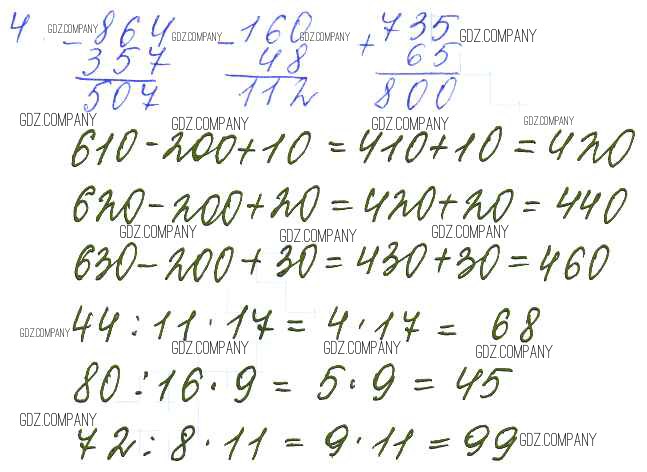 4. - 864 GDZ.COMPANY - 160 GDZ.COMPANY + 735 GDZ.COMPANY
GDZ.COMPANY
357 48 65
507 112 800
GDZ.COMPANY GDZ.COMPANY GDZ.COMPANY GDZ.COMPANY
610 - 200 + 10 = 410 + 10 = 420
620 - 200 + 20 = 420 + 20 = 440
GDZ.COMPANY GDZ.COMPANY GDZ.COMPANY
630 - 200 + 30 = 430 + 30 = 460
GDZ.COMPANY 44 : 11 · 17 = 4 · 17 = 68
GDZ.COMPANY GDZ.COMPANY GDZ.COMPANY
80 : 16 · 9 = 5 · 9 = 45
GDZ.COMPANY
72 : 8 · 11 = 9 · 11 = 99 GDZ.COMPANY